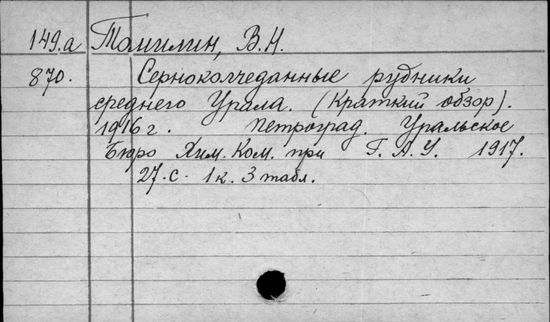 149.а Томилин, В.Н.
870. Серноколчеданные рудники
среднего Урала. (Краткий обзор).
1916 г. Петроград. Уральское
Бюро Хим. Ком. при Г. А. У. 1917.
27.с. 1 к. 3 табл.